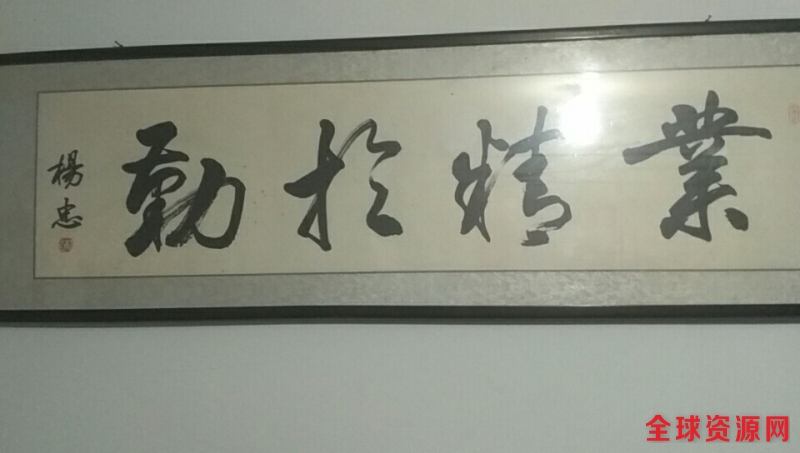 業精於勤
楊忠
全球资源网